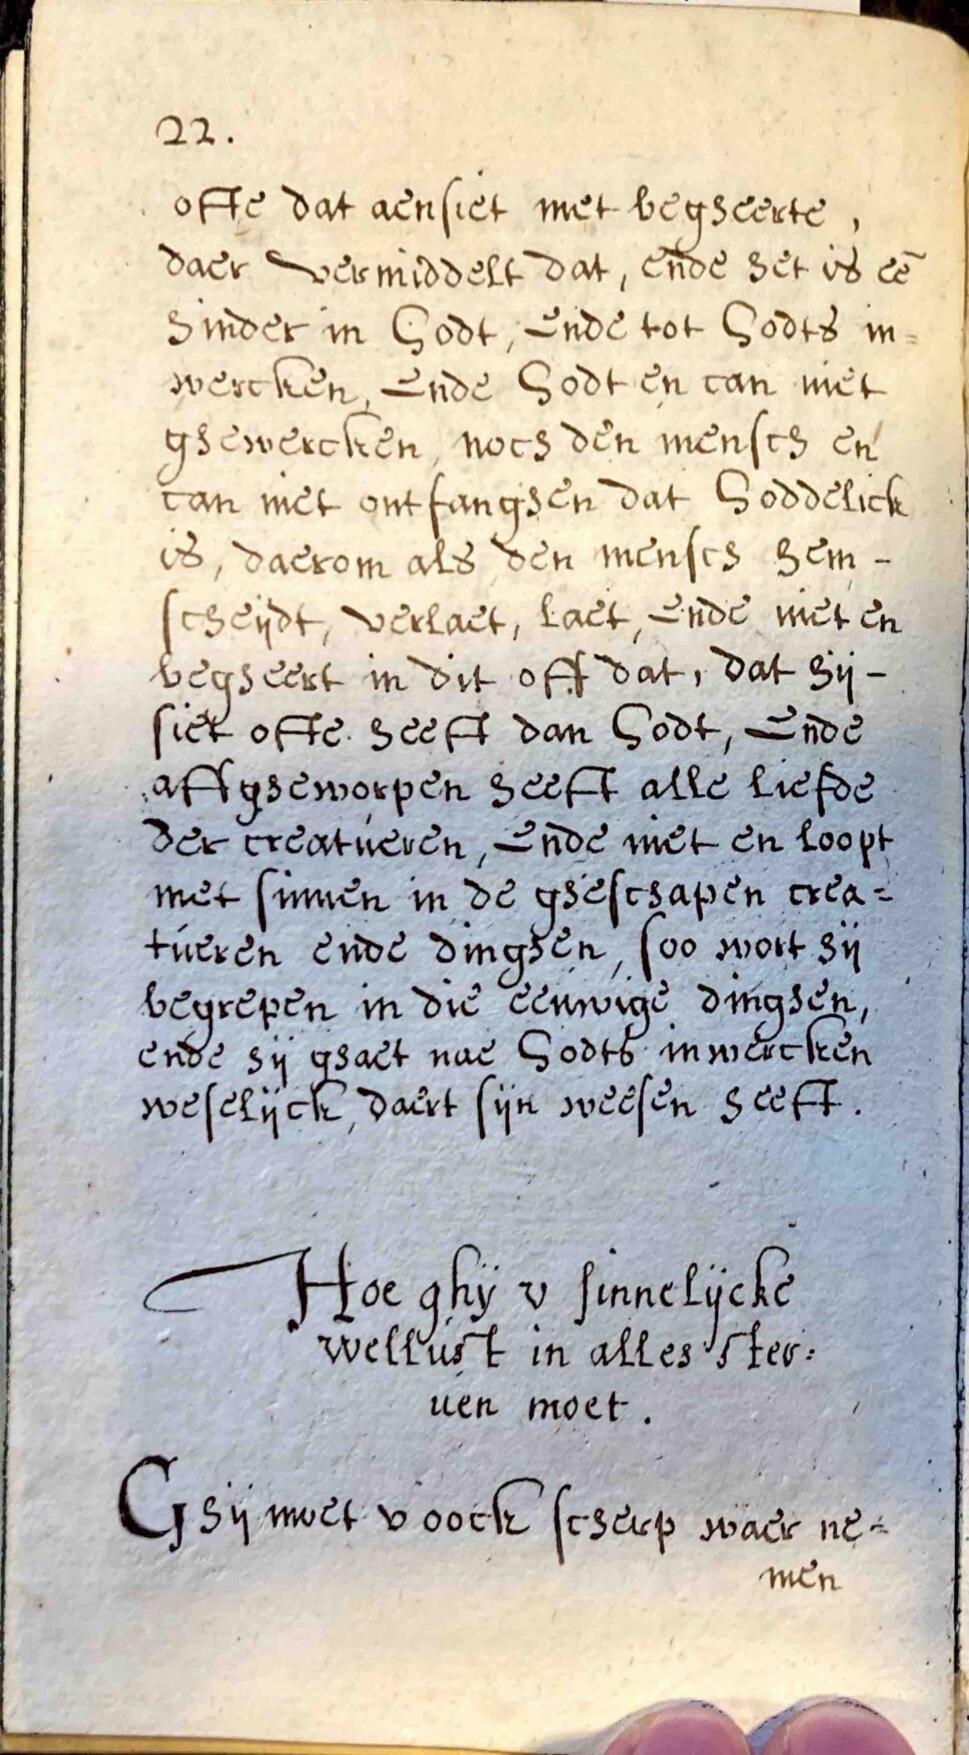 22.
offte dat aensiet met begheerte,
daer vermiddelt dat, ende het is eē
hinder in Godt, Ende tot Godts in=
wercken, Ende Godt en can niet
ghewercken, noch den mensch en
can niet ontfanghen dat Goddelick
is, daerom als den mensch hem -
scheijdt, verlaet, laet, Ende niet en
begheert in dit off dat, dat hij -
siet offte heefft dan Godt, Ende
affgheworpen heefft alle liefde
der creatueren, Ende niet en loopt
met sinnen in de gheschapen crea=
tueren ende dinghen, soo wort hij
begrepen in die eeuwige dinghen,
ende hij ghaet nae Godts inwercken
weselijck, daert sijn weesen heefft.
Hoe ghij v sinnelijcke
wellust in alles ster=
uen moet.
Ghij moet v oock scherp waer ne=
men